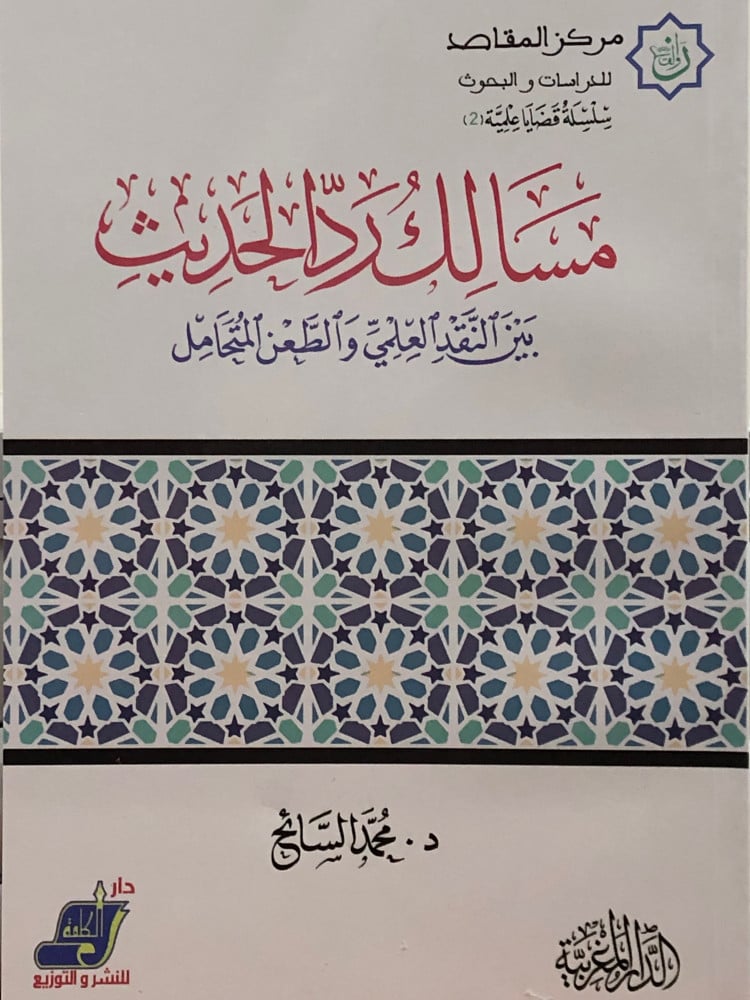 مركز المقاصد
للدراسات والبحوث
سِلْسِلَةُ قَضَايَا عِلْمِيَّة (2)
مَسَالِكُ رَدِّ الحَدِيثِ
بَيْنَ النَّقْدِ العِلْمِيِّ وَالطَّعْنِ المُتَحَامِل
د. محمَّد السَّائح
دار
الكلمة
للنشر والتوزيع
الدَّار المَغْرِبيَّة